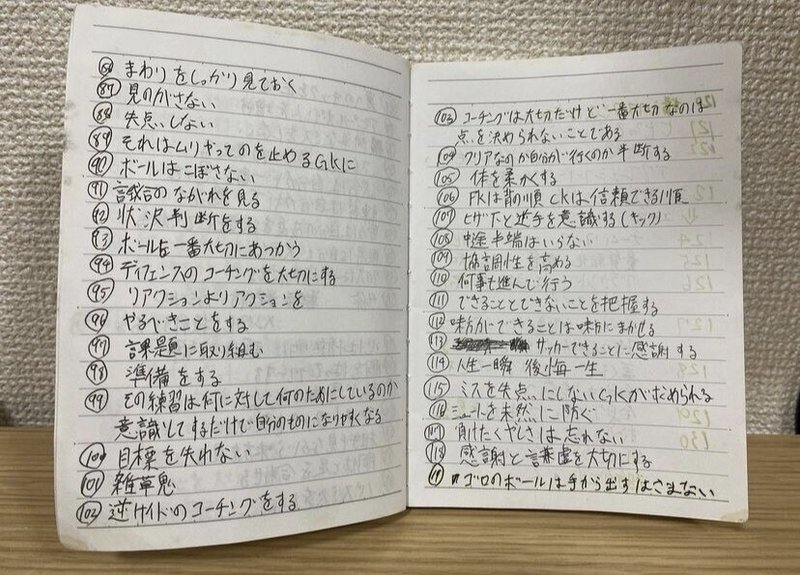 86 まわりをしっかり見ておく
87 見のがさない
88 失点しない
89 それはムリやってのを止めるGKに
90 ボールはこぼさない
91 試合のながれを見る
92 状況判断をする
93 ボールを一番大切にあつかう
94 ディフェンスのコーチングを大切にする
95 リアクションよりアクションを
96 やるべきことをする
97 課題に取り組む
98 準備をする
99 その練習は何に対して何のためにしているのか
意識してするだけで自分のものになりやすくなる
100 目標を失わない
101 雑草魂
102 逆サイドのコーチングをする
103 コーチングは大切だけど一番大切なのは
点を決められないことである
104 クリアなのか自分が行くのか判断する
105 体を柔かくする
106 FKは背の順 CKは信頼できる順
107 ヒザ下と逆手を意識する(キック)
108 中途半端はいらない
109 協調性を高める
110 何事も進んで行う
111 できることとできないことを把握する
112 味方にできることは味方にまかせる
113 サッカーできることに感謝する
114 人生一瞬 後悔一生
115 ミスを失点にしないGKが求められる
116 シュートを未然に防ぐ
117 負けたくやしさは忘れない
118 感謝と謙虚を大切にする
119 ゴロのボールは手から出すはさまない